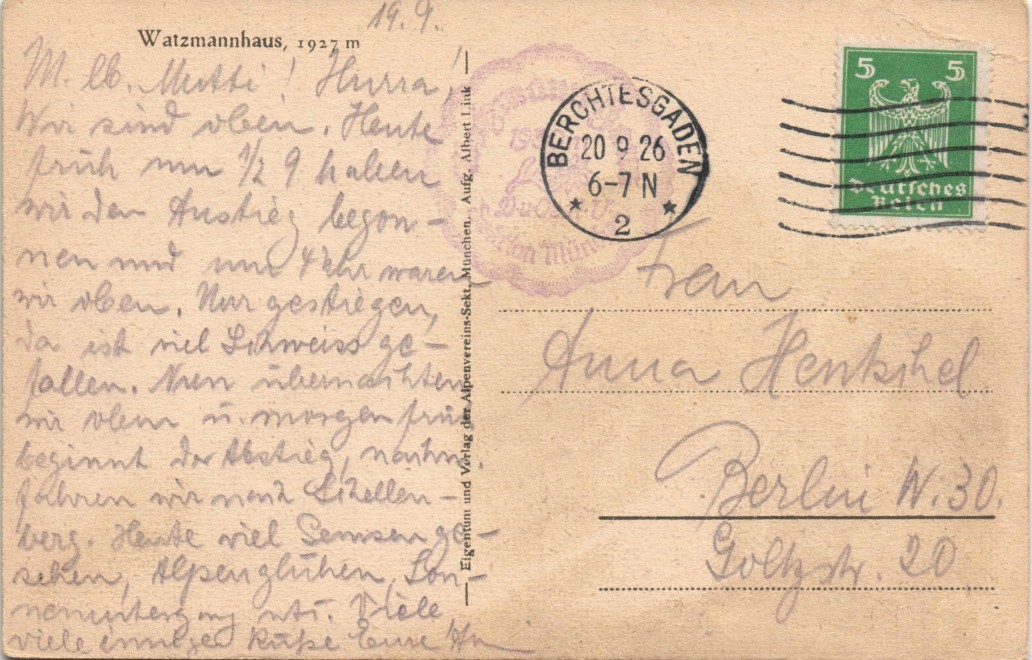 19.9.
Watzmannhaus, 1927 m
M. lb. Mutti! Hurra!
Wir sind oben. Heute
früh um 1/2 9 haben
wir den Anstieg begon-
nen und um 4 Uhr waren
wir oben. Nur gestiegen,
da ist viel Schweiss ge-
fallen. Nun übernachten
wir oben u. morgen früh
beginnt der Abstieg, nachm.
fahren wir nach Schellen-
berg. Heute viel Gemsen ge-
sehen, Alpenglühen, Son-
nenuntergang usw. Viele
viele innige Küße Eure
Eigentum und Verlag der Alpenvereins-Sekt. München. Aufg. Albert Link
Sektion München
BERCHTESGADEN
20 9 26
6-7 N
★ 2 ★
5 5
Deutsches
Reich
Frau
Anna Henschel
Berlin W. 30.
Goltzstr. 20